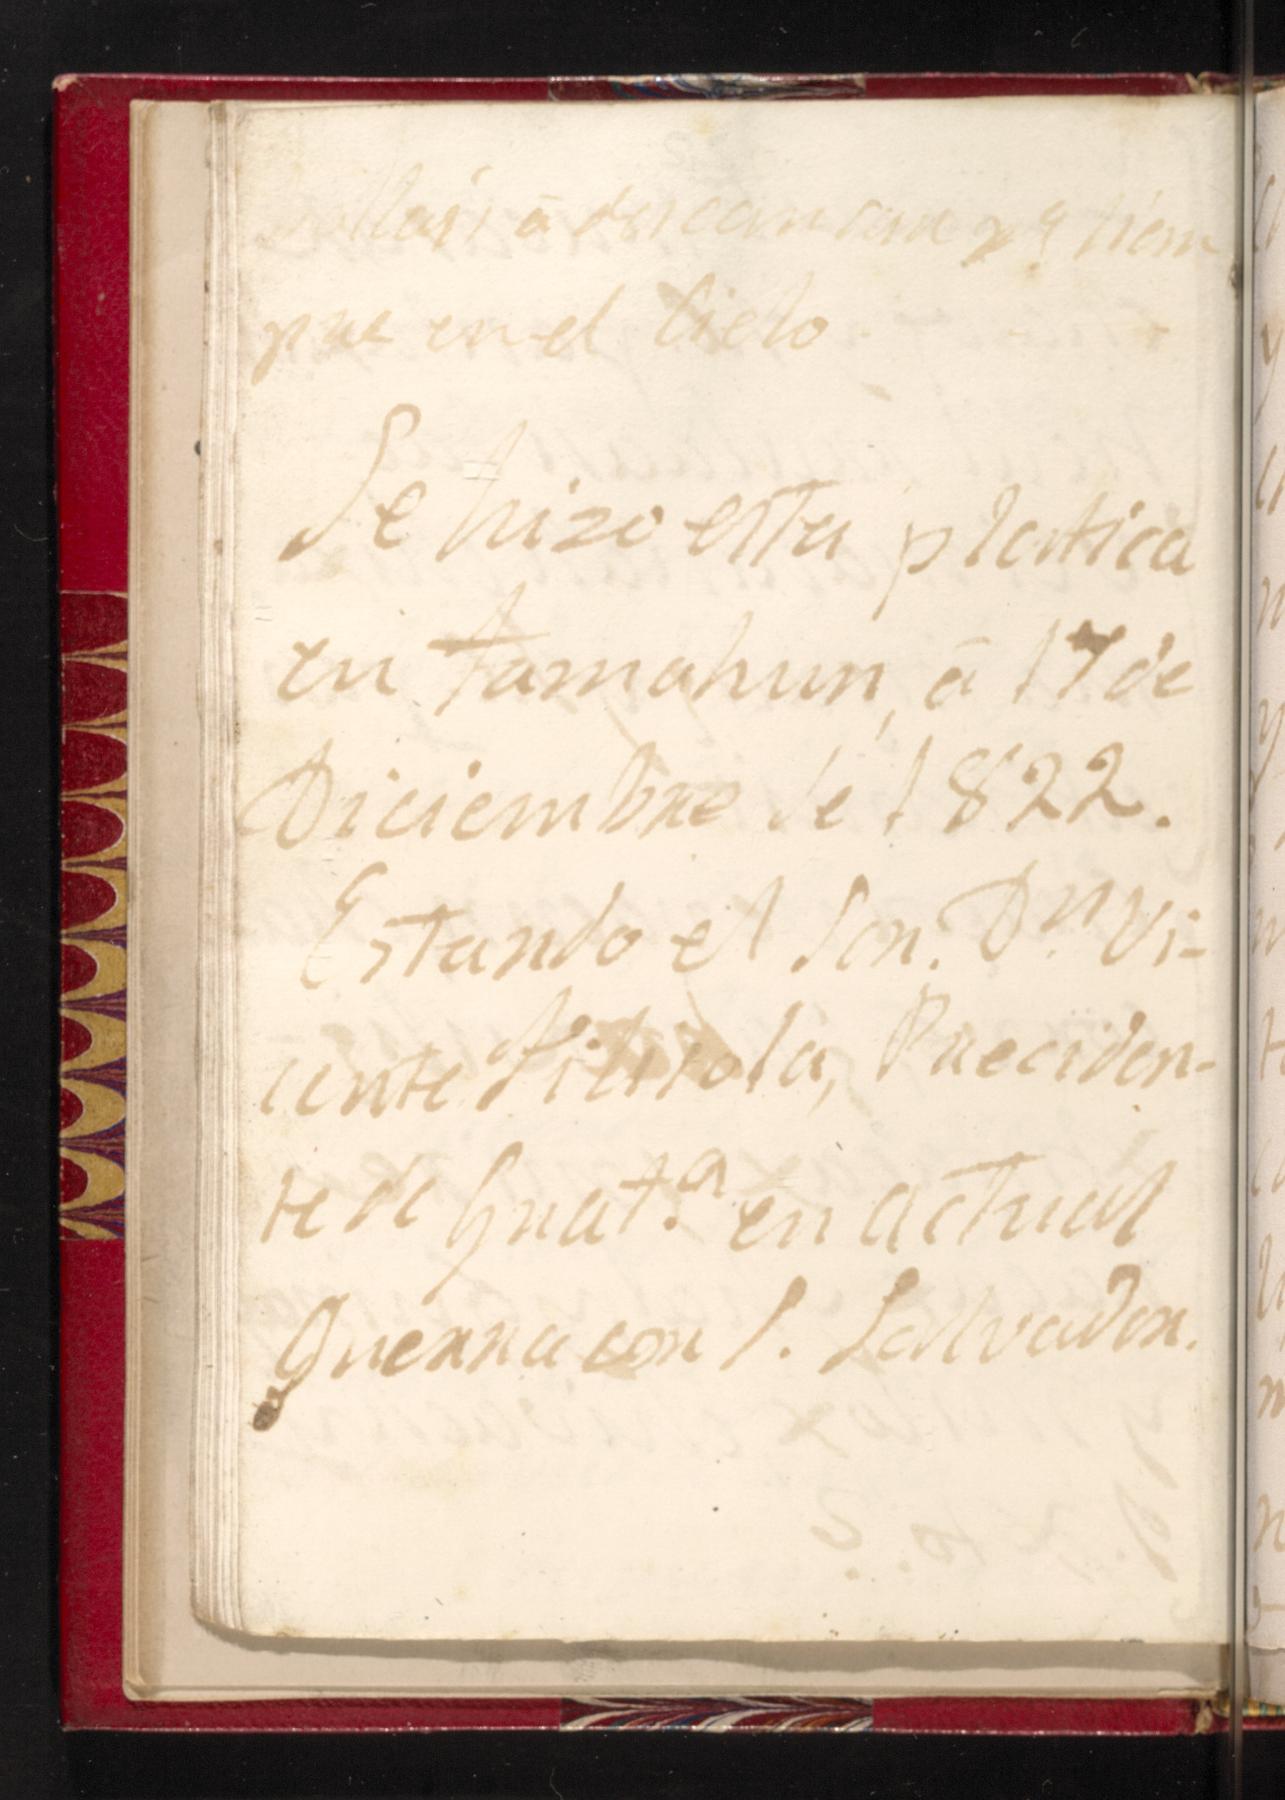 à descansar pᵃ siem
pre en el Cielo.
Se hizo esta platica
en tamahun, à 17 de
Diciembre de 1822.
Estando el Sor. Dⁿ Vi-
cente filisola, Preciden-
te de Guat.ᵃ en actual
Guerra con S. Salvador.